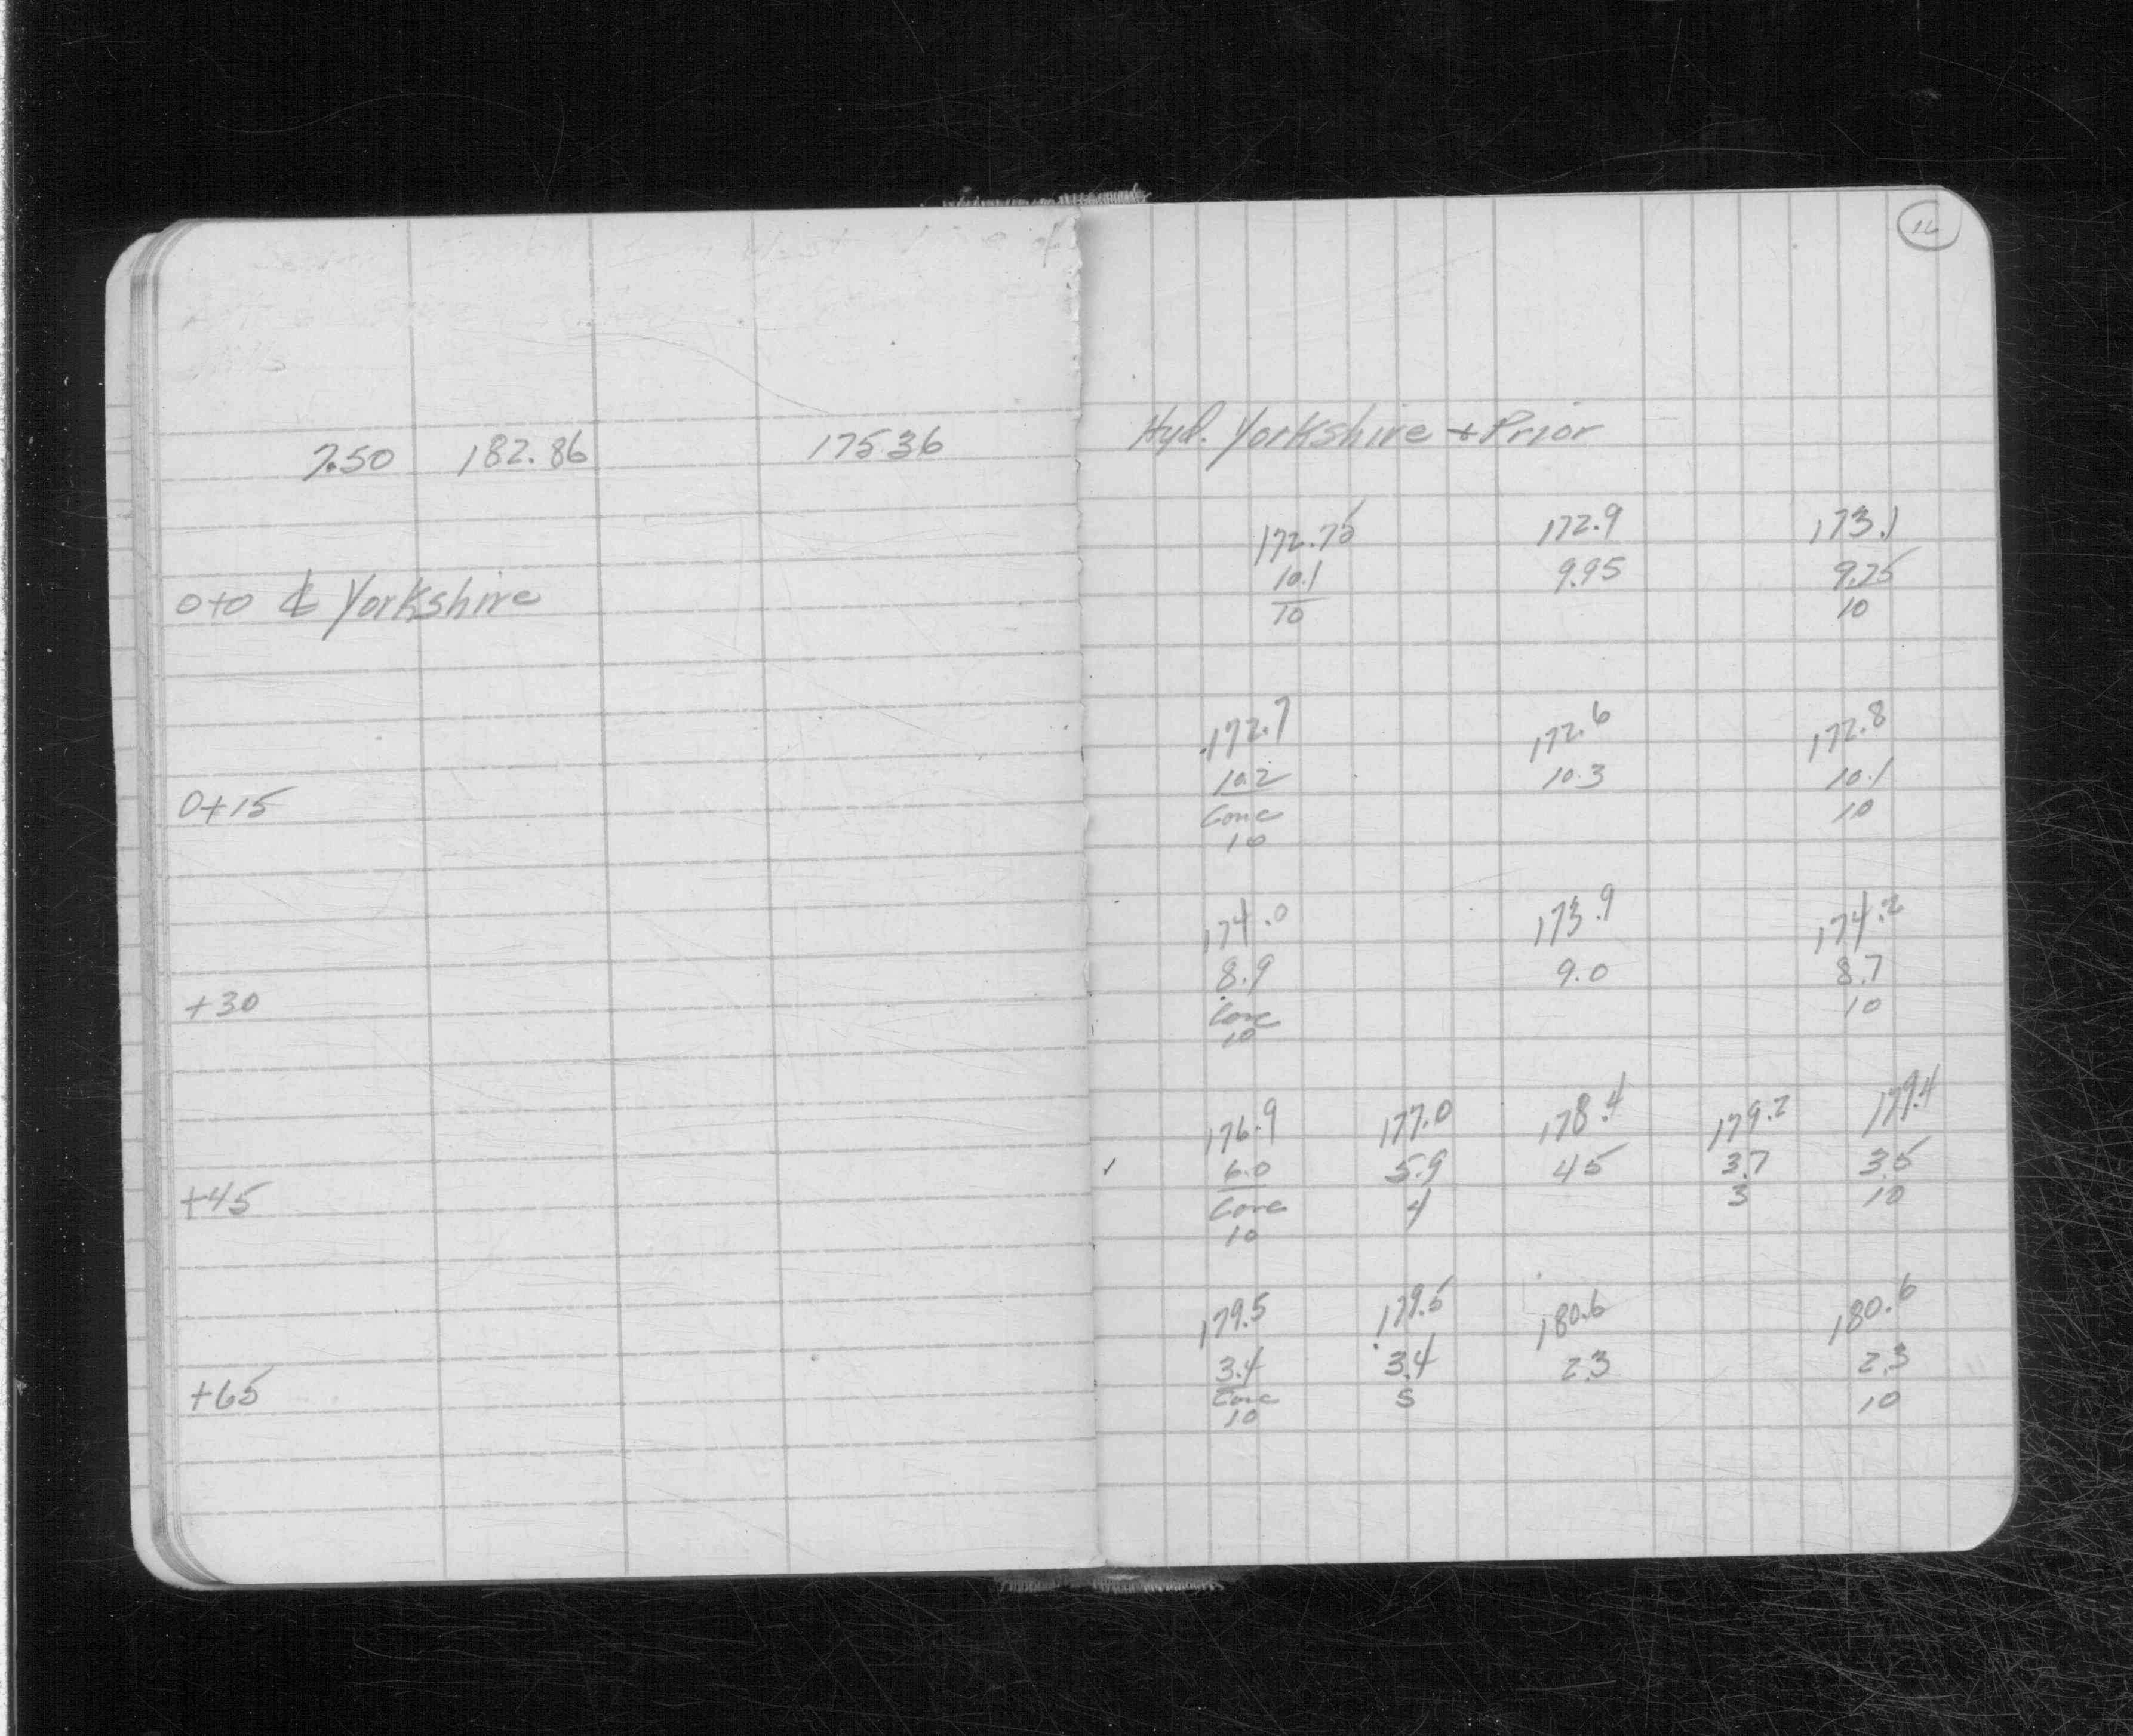 7.50 182.86 175 36
0+0 ℄ Yorkshire
0+15
+30
+45
+65
Hyd. Yorkshire + Prior
172.75 172.9 173.1
10.1 9.95 9.75
10 10
172.7 172.6 172.8
10.2 10.3 10.1
Conc 10
10
174.0 173.9 174.2
8.9 9.0 8.7
Conc 10
10
176.9 177.0 178.4 179.2 179.4
6.0 5.9 45 3.7 35
Conc 4 3 10
10
179.5 179.5 180.6 180.6
3.4 3.4 2.3 2.3
Conc 5 10
10